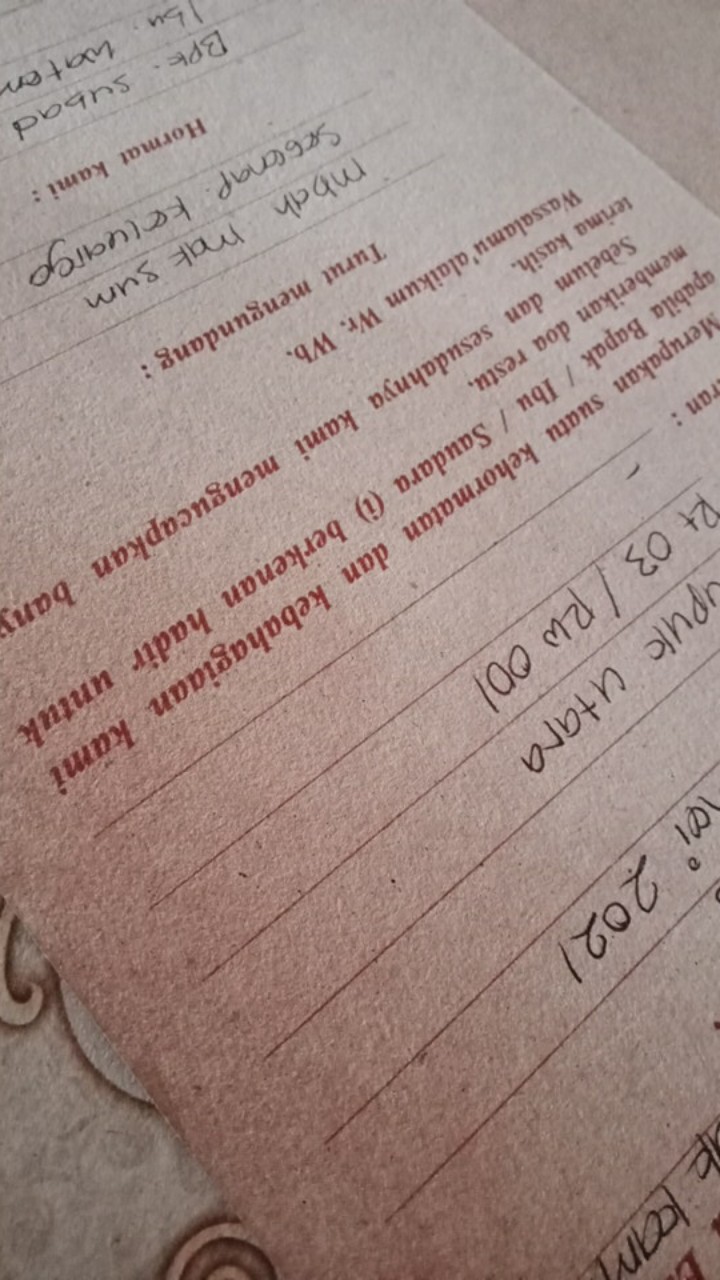 kami
2021
utara
Rt 03 / RW 001
: -
Merupakan suatu kehormatan dan kebahagiaan kami
apabila Bapak / Ibu / Saudara (i) berkenan hadir untuk
memberikan doa restu.
Sebelum dan sesudahnya kami mengucapkan bany
terima kasih.
Wassalamu'alaikum Wr. Wb.
Turut mengundang :
Mbah mak sum
segenap keluarga
Hormat kami :
Bpk. subad
Ibu. waten